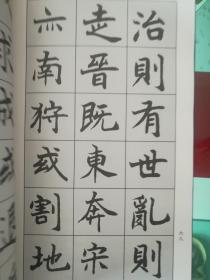 治則有世亂則
走晉既東奔宋
亦南狩或割地